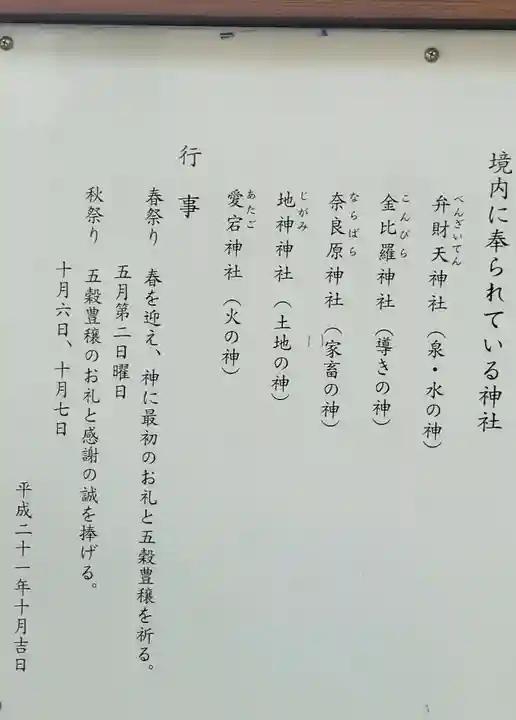 境内に奉られている神社
弁財天神社（泉・水の神）
べんざいてん
金比羅神社（導きの神）
こんぴら
奈良原神社（家畜の神）
ならばら
地神神社（土地の神）
じがみ
愛宕神社（火の神）
あたご
行事
春祭り　春を迎え、神に最初のお礼と五穀豊穣を祈る。
五月第二日曜日
秋祭り　五穀豊穣のお礼と感謝の誠を捧げる。
十月六日、十月七日
平成二十一年十月吉日